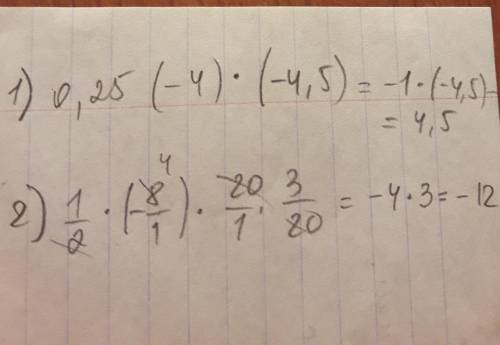 1) 0,25 (-4) · (-4,5) = -1 · (-4,5) =
= 4,5
2) 1/2 · (-8/1) · 20/1 · 3/20 = -4 · 3 = -12
4